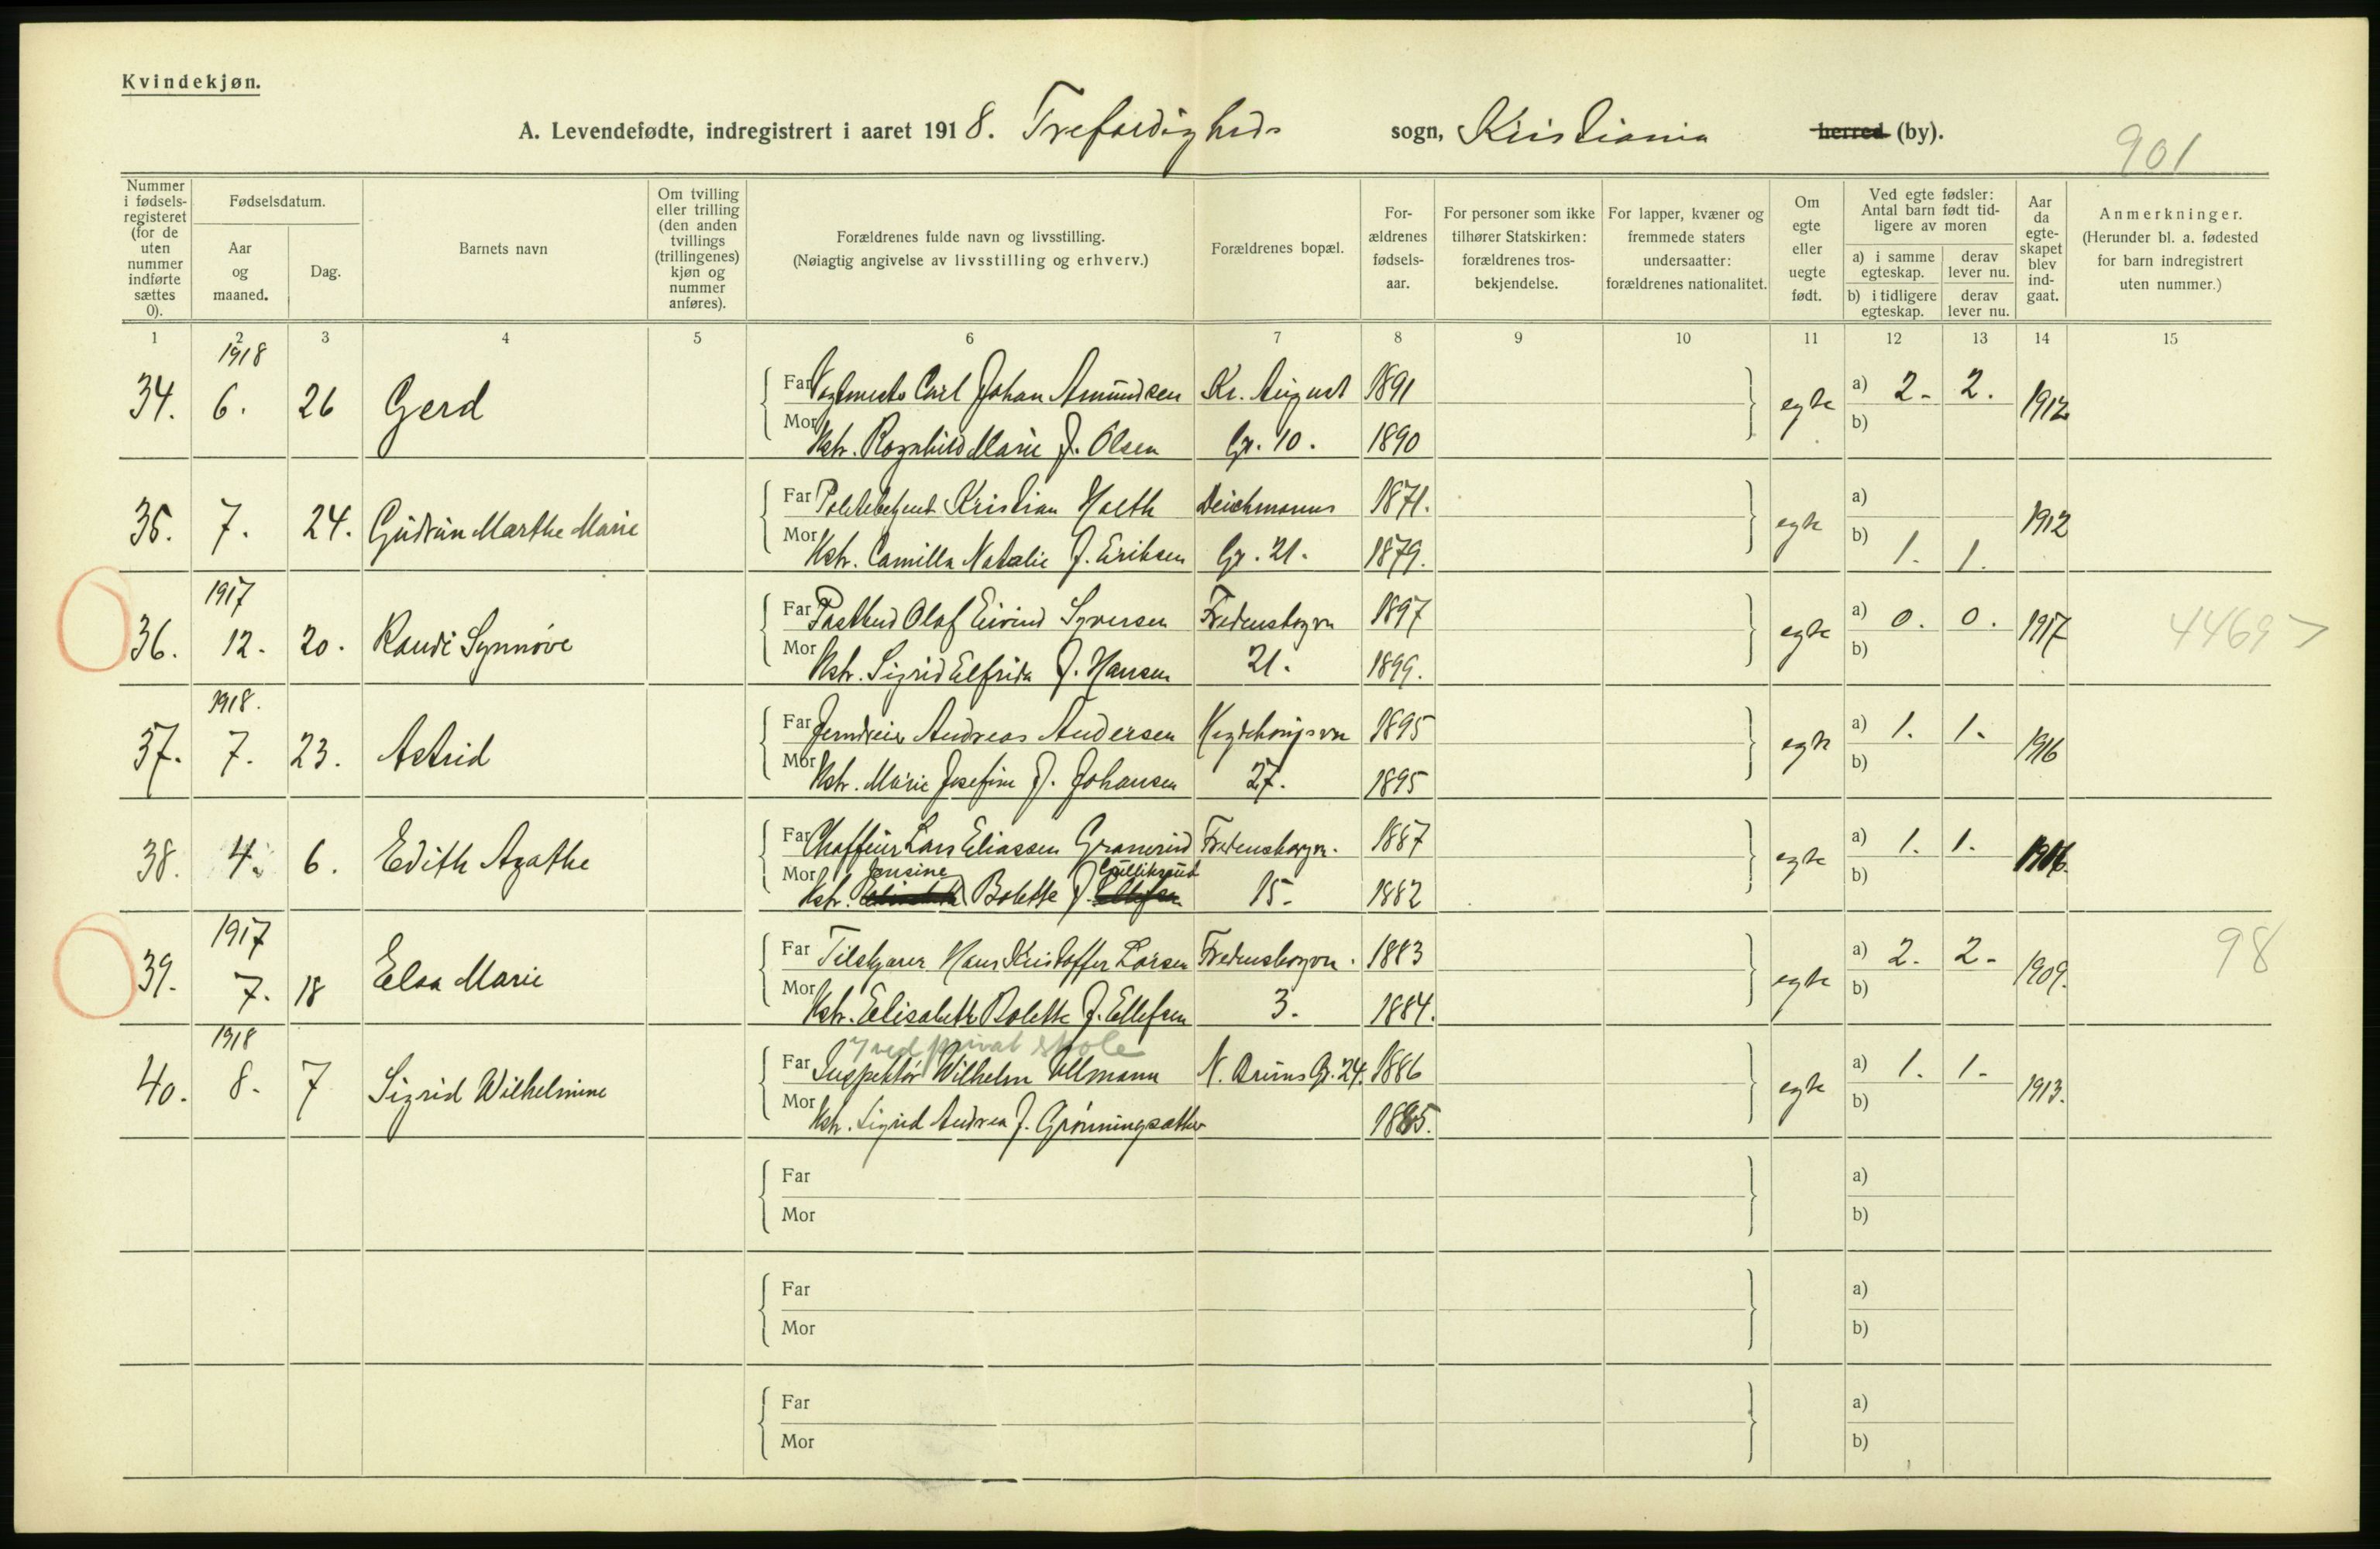 Kvindekjøn.
A. Levendefødte, indregistrert i aaret 1918. Trefoldigheds sogn, Kristiania herred (by).
901
Nummer i fødsels-registeret (for de uten nummer indførte sættes 0).
Fødselsdatum.
Aar og maaned.
Dag.
Barnets navn
Om tvilling eller trilling (den anden tvillings (trillingenes) kjøn og nummer anføres).
Forældrenes fulde navn og livsstilling.
(Nøiagtig angivelse av livsstilling og erhverv.)
Forældrenes bopæl.
For-ældrenes fødsels-aar.
For personer som ikke tilhører Statskirken: forældrenes tros-bekjendelse.
For lapper, kvæner og fremmede staters undersaatter: forældrenes nationalitet.
Om egte eller uegte født.
Ved egte fødsler: Antal barn født tid-ligere av moren
a) i samme egteskap. derav lever nu.
b) i tidligere egteskap. derav lever nu.
Aar da egte-skapet blev ind-gaat.
Anmerkninger.
(Herunder bl. a. fødested for barn indregistrert uten nummer.)
1 2 3 4 5 6 7 8 9 10 11 12 13 14 15
1918
34. 6. 26 Gerd Far Carl Johan Amundsen Kr. August 1891 egte a) 2. 2. 1912
Mor Hstr. Ragnhild Marie f. Olsen Gt. 10. 1890 b)
35. 7. 24. Gudrun Marthe Marie Far Politibetjent Kristian Holth Deichmanns 1871. egte a) 1912
Mor Hstr. Camilla Natalie f. Eriksen Gt. 21. 1879. b) 1. 1.
1917
36. 12. 20. Randi Synnøve Far Postbud Olaf Eivind Syversen Fredensborgvn 1897 egte a) 0. 0. 1917 44697
Mor Hstr. Sigrid Elfrida f. Hansen 21. 1899. b)
1918.
37. 7. 23. Astrid Far Jerndreier Andreas Andersen 1895 egte a) 1. 1. 1916
Mor Hstr. Marie Josefine f. Johansen 27. 1895 b)
38. 4. 6. Edith Agathe Far Chaffeur Lars Eliassen Granerud Fredensborgvn. 1887 egte a) 1. 1. 1916.
Jensine Gulliksrud
Mor Hstr. Bolette f. 15. 1882 b)
1917
39. 7. 18 Elsa Marie Far Tilskjærer Hans Kristoffer Larsen Fredensborgvn. 1883 egte a) 2. 2. 1909. 98
Mor Hstr. Elisabeth Bolette f. Ellefsen 3. 1884. b)
1918
ved privat skole
40. 8. 7 Sigrid Wilhelmine Far Inspektør Wilhelm Ullmann N. Bruns Gt. 24. 1886 egte a) 1. 1. 1913.
Mor Hstr. Sigrid Andrea f. Grønningsæther 1885. b)
Far a)
Mor b)
Far a)
Mor b)
Far a)
Mor b)